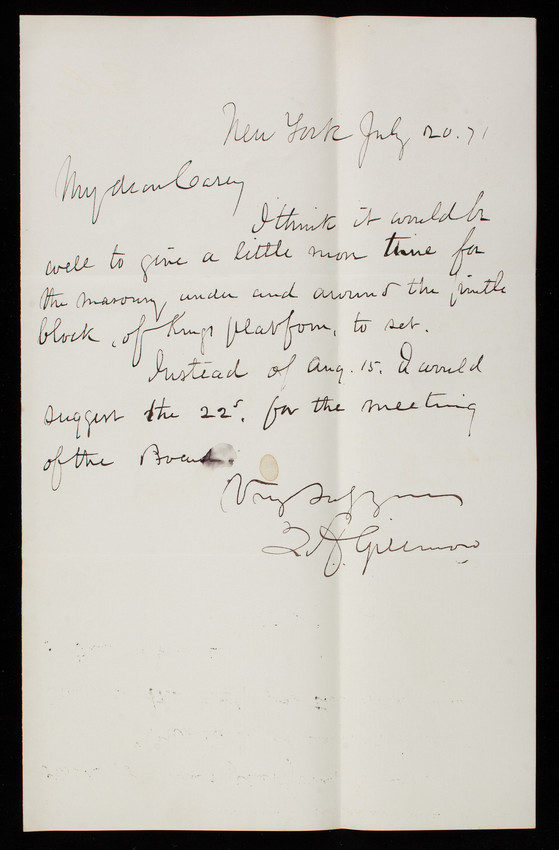 New York July 20. 71
My dear Casey
I think it would be
well to give a little more time for
the masonry, under and around the pintle
block, of King's platform, to set.
Instead of Aug. 15. I would
suggest the 22d. for the meeting
of the Board.
Very truly yours
Q A Gillmore